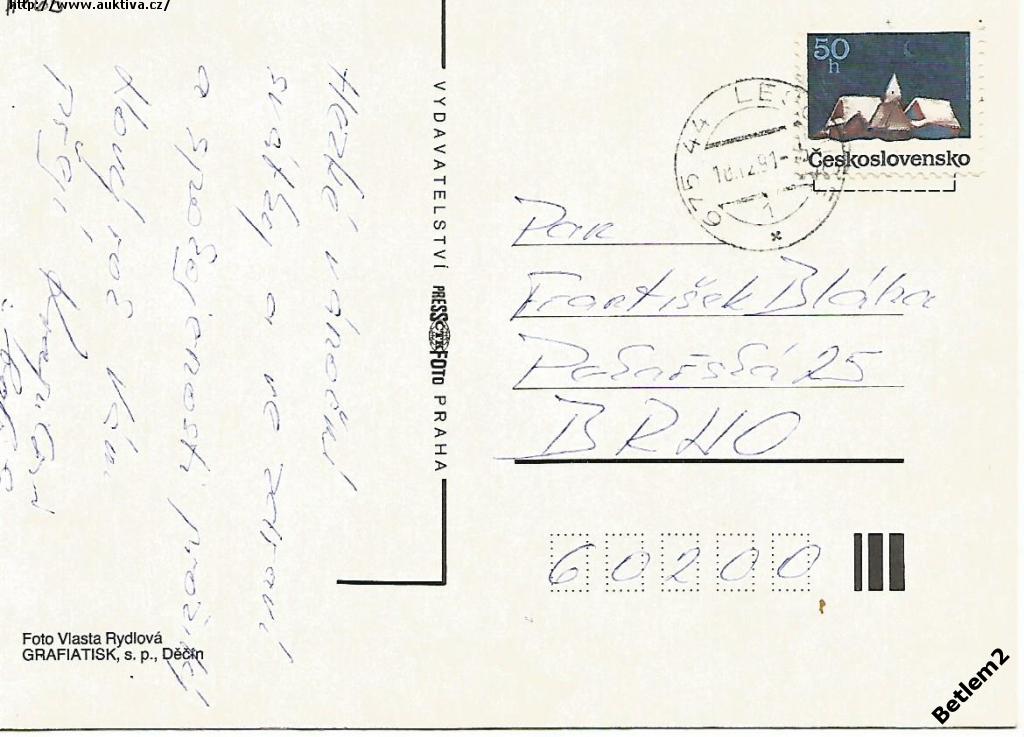 http://www.auktiva.cz/
Hezké vánoční
svátky a ve zdraví
a spokojenosti prožitý
Nový rok Vám
přejí
VYDAVATELSTVÍ PRESSFOTO PRAHA
ČTK
50
h
Československo
675 44 LE
18.12.91
1
Pan
František Bláha
25
BRNO
60200
Foto Vlasta Rydlová
GRAFIATISK, s. p., Děčín
Betlem2